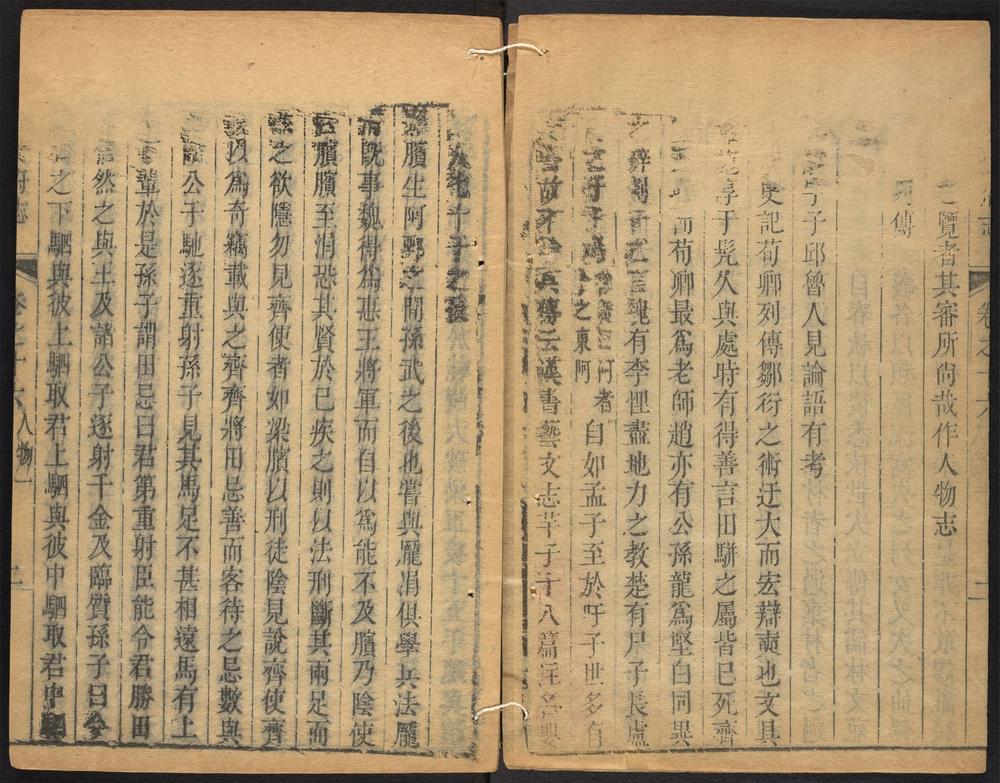 之覽者其審所尙哉作人物志
列傳
子邱魯人見論語有考
史記荀卿列傳鄒衍之術迂大而宏辯奭也文具
淳于髡久與處時有得善言田駢之屬皆已死齊
而荀卿最爲老師趙亦有公孫龍爲堅白同異
之辯劇子之言魏有李悝盡地力之敎楚有尸子長盧
之吁子焉
阿者
之東阿
自如孟子至於吁子世多有
書故不云漢書藝文志芋子十八篇注名嬰
人七十子之後
臏生阿鄄之間孫武之後也嘗與龐涓俱學兵法龐
涓既事魏得爲惠王將軍而自以爲能不及臏乃陰使
召臏臏至涓恐其賢於已疾之則以法刑斷其兩足而
之欲隱勿見齊使者如梁臏以刑徒陰見說齊使齊
使以爲奇竊載與之齊齊將田忌善而客待之忌數與
公子馳逐重射孫子見其馬足不甚相遠馬有上
輩於是孫子謂田忌曰君第重射臣能令君勝田
忌信然之與王及諸公子逐射千金及臨質孫子曰今
君之下駟與彼上駟取君上駟與彼中駟取君中駟
府志
卷之十六
人物一
二